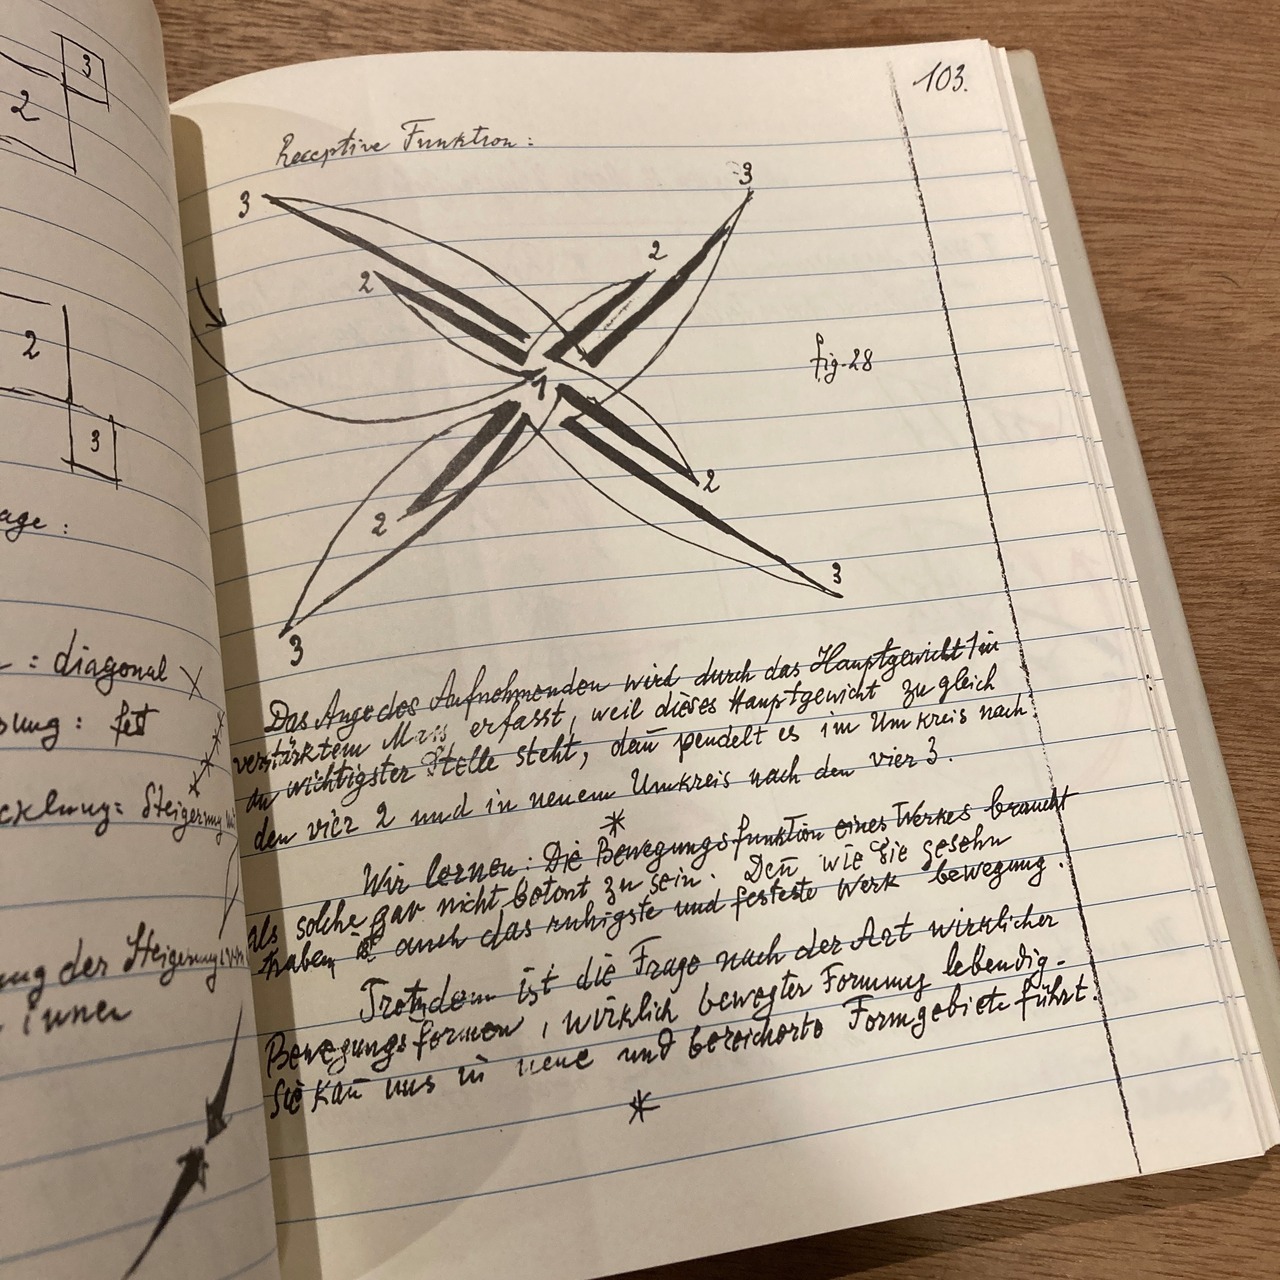 3
2
2
3
age :
: diagonal
: fest
Steigerung
ung der Steigerung von
innen
103.
Receptive Funktion :
3
3
2
2
1
fig. 28
2
2
3
3
Das Auge des Aufnehmenden wird durch das Hauptgewicht 1 in
verstärktem Mass erfasst, weil dieses Hauptgewicht zu gleich
an wichtigster Stelle steht, dan̄ pendelt es im Umkreis nach
den vier 2 und in neuem Umkreis nach den vier 3.
*
Wir lernen: Die Bewegungsfunktion eines Werkes braucht
als solche gar nicht betont zu sein. Den̄ wie Sie gesehn
haben, auch das ruhigste und festeste Werk bewegung.
Trotzdem ist die Frage nach der Art wirklicher
Bewegungsformen, wirklich bewegter Formung lebendig.
Sie kan̄ uns in neue und bereicherte Formgebiete führt.
*